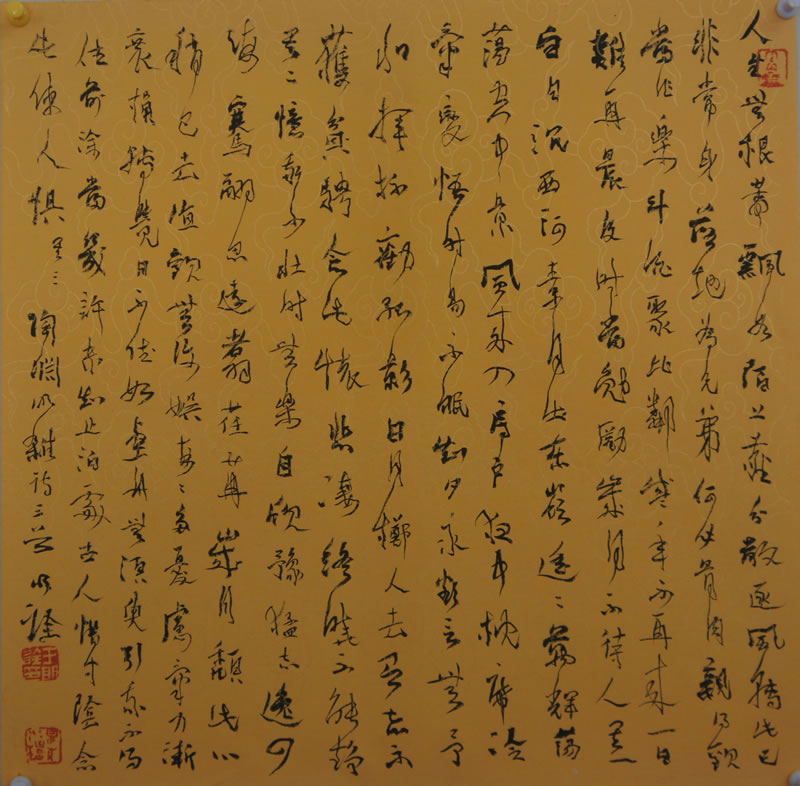 人生無根蒂飄如陌上塵分散逐風轉此已
非常身落地為兄弟何必骨肉親得歡
當作樂斗酒聚比鄰盛年不再來一日
難再晨及時當勉勵歲月不待人其一
白日沉西阿素月出東嶺遙〻萬輝蕩
蕩空中景風來入房戶夜中枕席冷
氣變悟時易不眠知夕永欲言無予
和揮杯勸孤影日月擲人去有志不
獲騁念此懷悲悽終曉不能靜
其二憶我少壯時無樂自欣豫猛志逸四
海騫翮思遠翥荏苒歲月頹此心
稍已去值歡無復娛每〻多憂慮氣力漸
衰損轉覺日不如壑舟無須臾引我不得
住前途當幾許未知止泊處古人惜寸陰念
此使人懼其三陶淵明雜詩三首